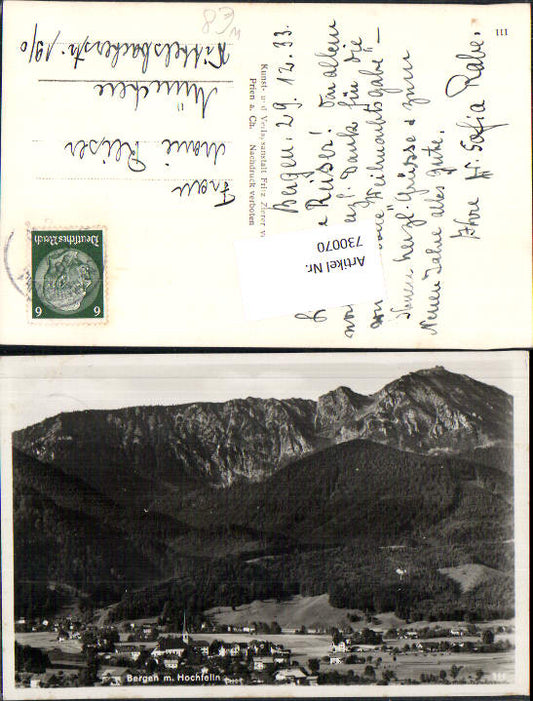 111
Bergen, 29. 12. 33.
Reiser! Vor allem
noch herzl. Dank für die
Weihnachtsgabe" –
Ihnen herzl. Grüsse & zum
Neuen Jahre alles gute.
Ihre Fr. Sofia Rabe.
Kunst- und Verlagsanstalt Fritz Zierer
Prien a. Ch. Nachdruck verboten
Frau
Marie Reiser
München
Wittelsbacherstr. 19/0
Deutsches Reich
6 6
Artikel Nr.
730070
Bergen m. Hochfelln
111